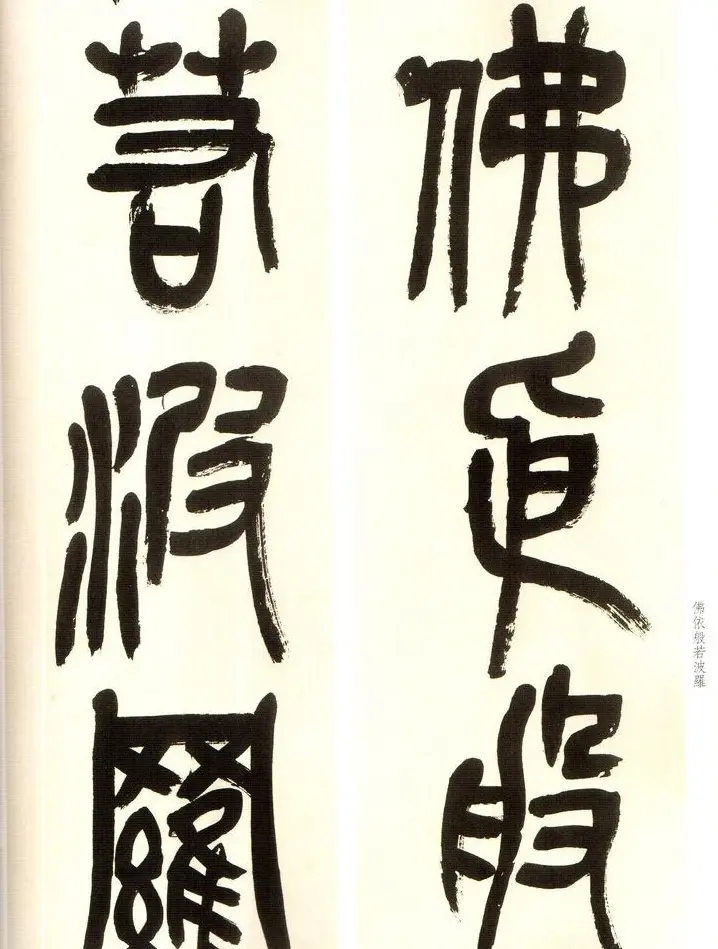 佛依般
若波羅
佛依般若波羅